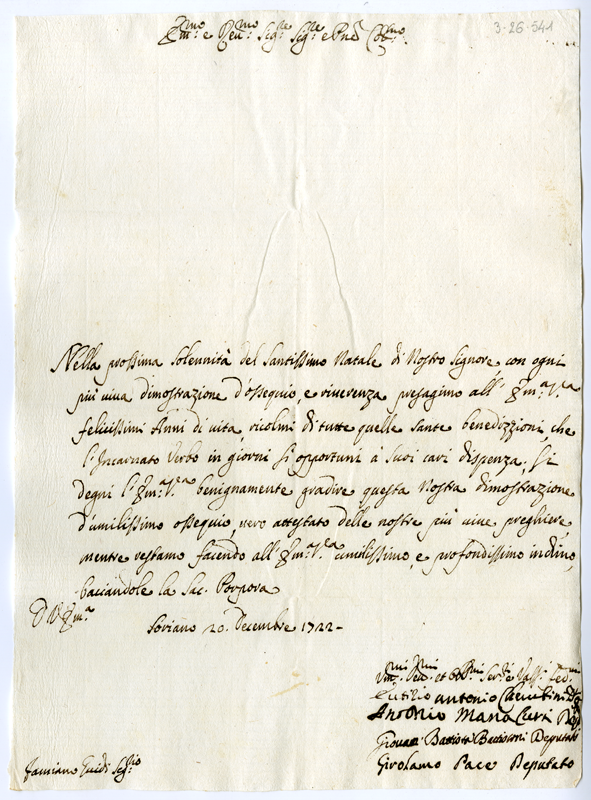 3-26-541
Em.mo e Rev.mo Sig.re Sig.re e Pnẽ Col.mo
Nella prossima solennità del Santissimo Natale di Nostro Signore, con ogni
più viva dimostrazione d'ossequio, e riverenza presagimo all' Em.a V.a
felicissimi Anni di vita, ricolmi di tutte quelle sante benedizzioni, che
l'Incarnato Verbo in giorni sì opportuni à suoi cari dispenza; si
degni l'Em.a V.a benignamente gradire questa nostra dimostrazione
d'umilissimo ossequio, vero attestato delle nostre più vive preghiere,
mentre restamo facendo all' Em.a V.a umilissimo, e profondissimo inchino,
baciandole la Sac. Porpora
D V. Em.a
Soriano 20 Decembre 1722-
Um.mi Dev. et Obb.mi Ser.ri e Vass.i
antonio
Antonio Maria Curi Dep.
Giovan Battista Battistini Deputato
Girolamo Pace Deputato
Guidi Seg.rio